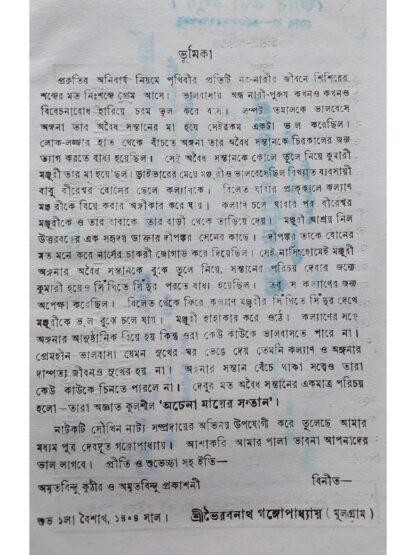 ভূমিকা
প্রকৃতির অনিবার্য নিয়মে পৃথিবীর প্রতিটি নর-নারীর জীবনে শিশিরের
শব্দের মত নিঃশব্দে প্রেম আসে। ভালবাসায় অন্ধ নারী-পুরুষ কখনও কখনও
বিবেচনাবোধ হারিয়ে চরম ভুল করে বসে। লম্পট তমালকে ভালবেসে
অঙ্গনা তার অবৈধ সন্তানের মা হয়ে সেইরকম একটা ভুল করেছিল।
লোক-লজ্জার হাত থেকে বাঁচতে অঙ্গনা তার অবৈধ সন্তানকে চিরকালের জন্য
ত্যাগ করতে বাধ্য হয়েছিল। সেই অবৈধ সন্তানকে কোলে তুলে নিয়ে কুমারী
মঞ্জুরী তার মা হয়েছিল। ড্রাইভারের মেয়ে মঞ্জুরীও ভালবেসেছিল বিখ্যাত ব্যবসায়ী
বাবু বীরেশ্বর বোসের ছেলে কল্যাণকে। বিলেত যাবার প্রাক্কালে কল্যাণ
মঞ্জুরীকে বিয়ে করার অঙ্গীকার করে যায়। কল্যাণ চলে যাবার পর বীরেশ্বর
মঞ্জুরীকে ও তার বাবাকে তার বাড়ী থেকে তাড়িয়ে দেয়। মঞ্জুরী আশ্রয় নিল
উত্তরবঙ্গের এক সহৃদয় ডাক্তার দীপঙ্কর সেনের কাছে। দীপঙ্কর তাকে বোনের
মত মনে করে নার্সের চাকরী জোগাড় করে দিয়েছিল। সেই নার্সিংহোমেই মঞ্জুরী
অঙ্গনার অবৈধ সন্তানকে বুকে তুলে নিয়ে, সন্তানের পরিচয় দেবার জন্যে
কুমারী হয়েও সিঁথিতে সিঁদুর পরতে বাধ্য হয়েছিল। তবু সে কল্যাণের জন্য
অপেক্ষা করেছিল। বিলেত থেকে ফিরে কল্যাণ মঞ্জুরীর সিঁথিতে সিঁদুর দেখে
মঞ্জুরীকে ভুল বুঝে চলে যায়। মঞ্জুরী হাহাকার করে ওঠে। কল্যাণের সঙ্গে
অঙ্গনার আনুষ্ঠানিক বিয়ে হয় কিন্তু ওরা কেউ কাউকে ভালবাসতে পারে না।
প্রেমহীন ভালবাসা যেমন সুখের ঘর ভেঙে দেয় তেমনি কল্যাণ ও অঙ্গনার
দাম্পত্য জীবনও সুখের হয় না। অঙ্গনার সন্তান বেঁচে থাকা সত্ত্বেও তারা
কেউ কাউকে চিনতে পারলে না। দেবুর মত অবৈধ সন্তানের একমাত্র পরিচয়
হলো—তারা অজ্ঞাত কুলশীল 'অচেনা মায়ের সন্তান'।
নাটকটি সৌখিন নাট্য সম্প্রদায়ের অভিনয় উপযোগী করে তুলেছে আমার
মধ্যম পুত্র দেবদূত গঙ্গোপাধ্যায়। আশাকরি আমার পালা ভাবনা আপনাদের
ভাল লাগবে। প্রীতি ও শুভেচ্ছা সহ ইতি—
অমৃতবিন্দু কুঠীর ও অমৃতবিন্দু প্রকাশনী বিনীত—
শুভ ১লা বৈশাখ, ১৪০৪ সাল। শ্রীভৈরবনাথ গঙ্গোপাধ্যায় (মূলগ্রাম)